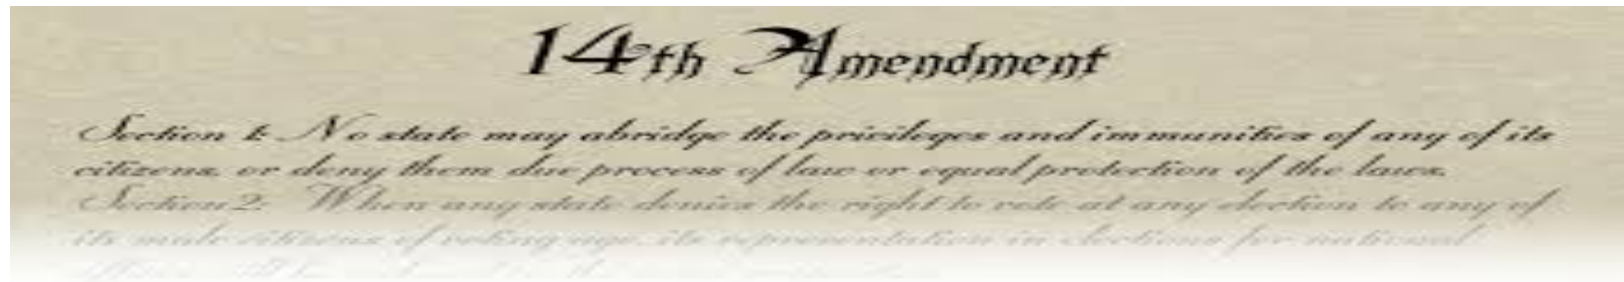 14th Amendment
Section 1: No state may abridge the privileges and immunities of any of its
citizens, or deny them due process of law or equal protection of the laws.
Section 2: When any state denies the right to vote at any election to any of
its male citizens of voting age, its representation in elections for national